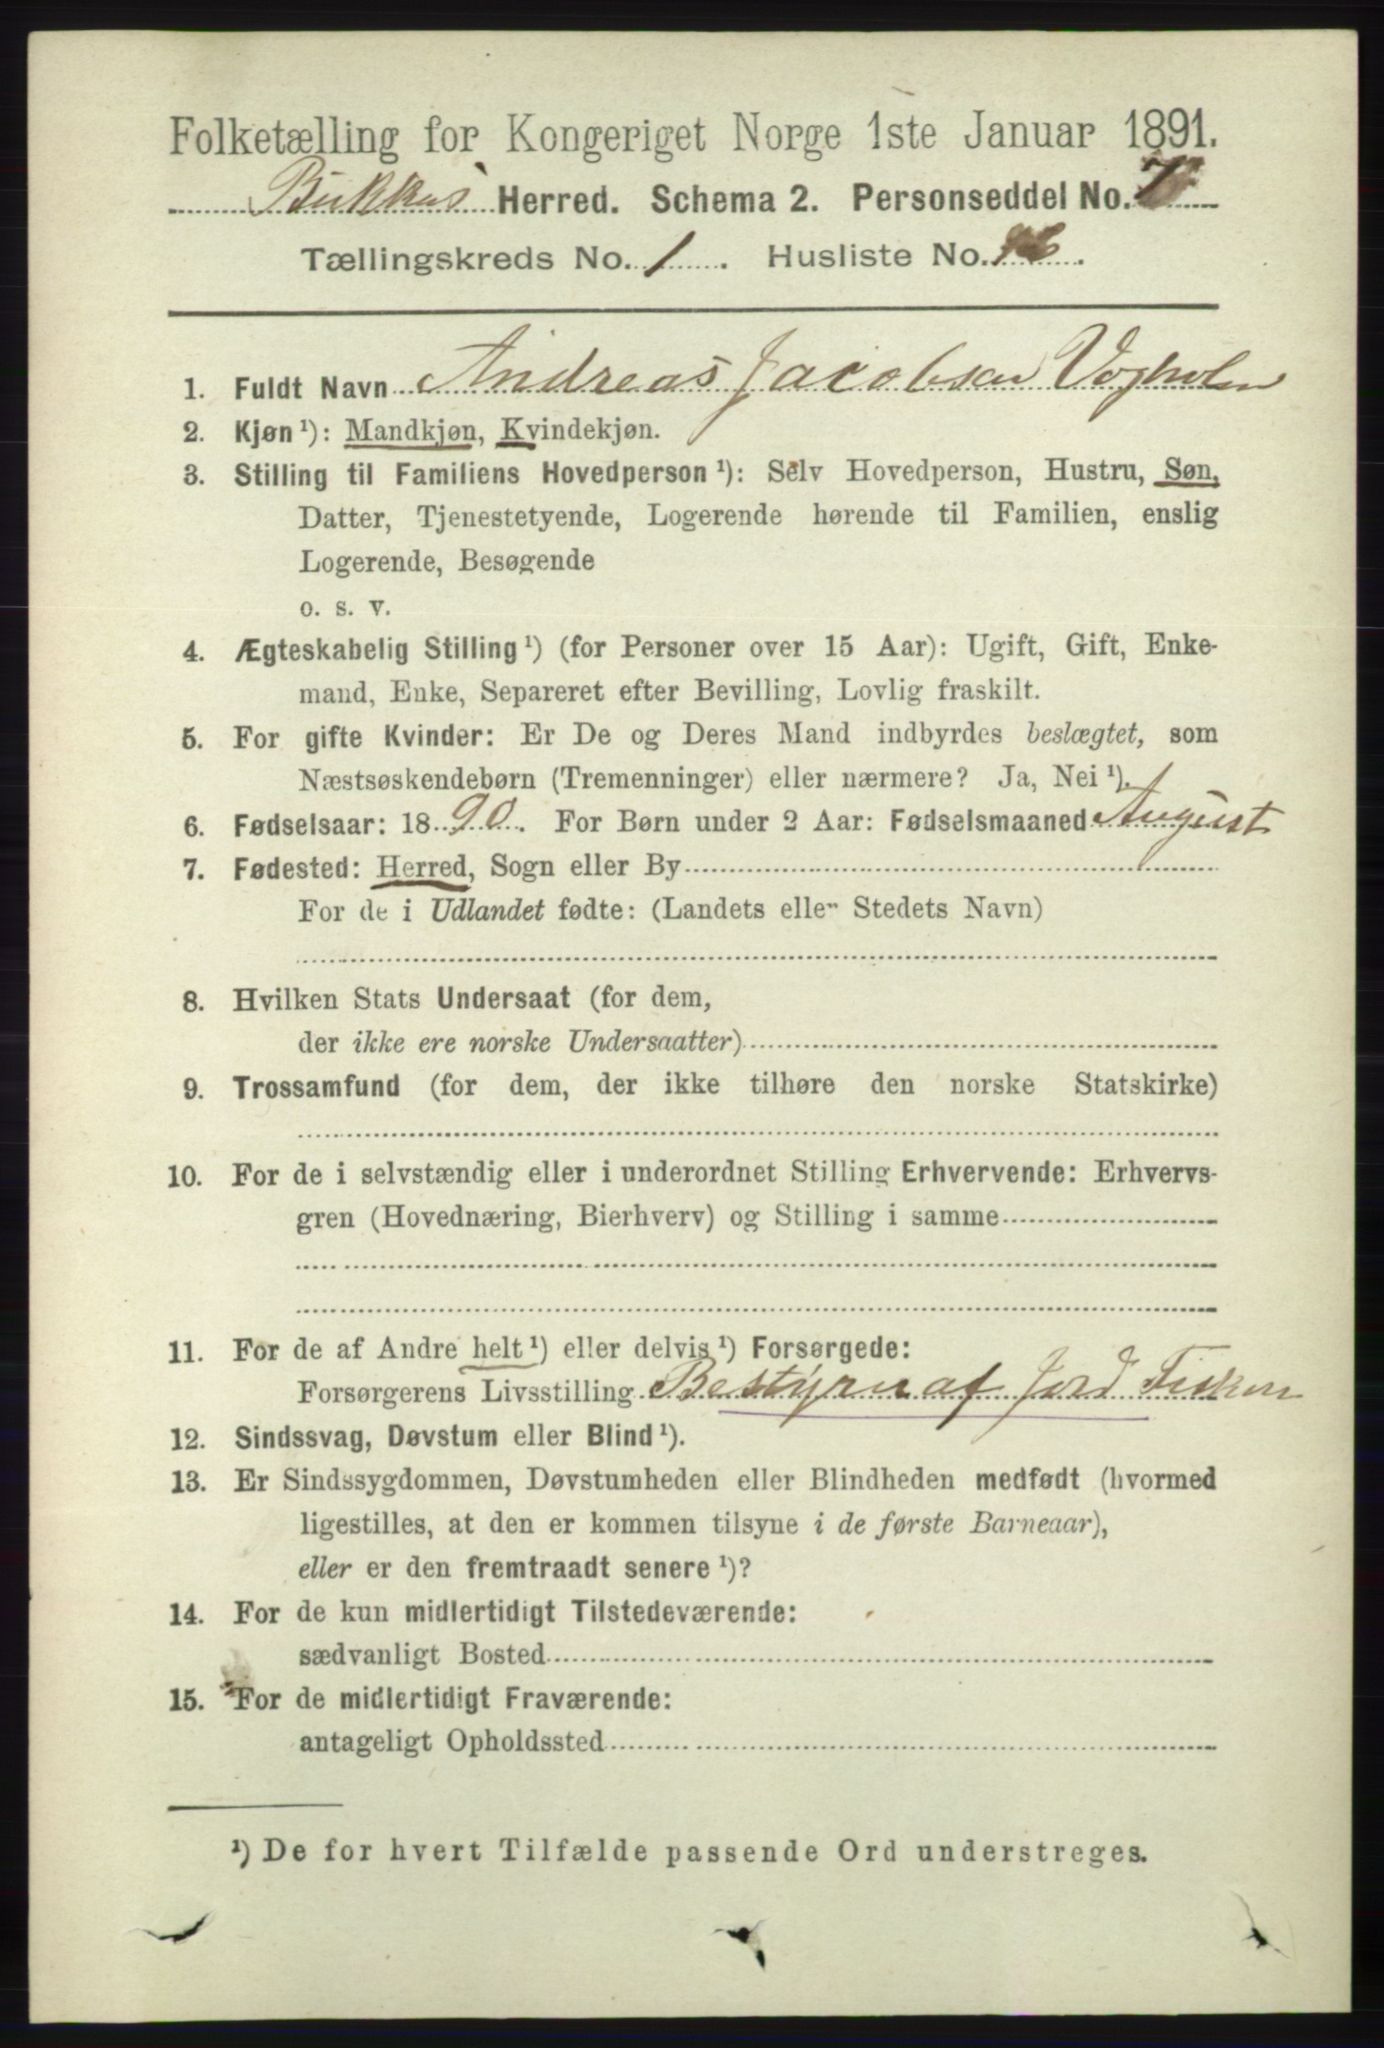 Folketælling for Kongeriget Norge 1ste Januar 1891.
Bukkns Herred. Schema 2. Personseddel No. 7
Tællingskreds No. 1. Husliste No.
1. Fuldt Navn Andreas Jacobsen Vogholm
2. Kjøn ¹): Mandkjøn, Kvindekjøn.
3. Stilling til Familiens Hovedperson ¹): Selv Hovedperson, Hustru, Søn,
Datter, Tjenestetyende, Logerende hørende til Familien, enslig
Logerende, Besøgende
o. s. v.
4. Ægteskabelig Stilling ¹) (for Personer over 15 Aar): Ugift, Gift, Enke-
mand, Enke, Separeret efter Bevilling, Lovlig fraskilt.
5. For gifte Kvinder: Er De og Deres Mand indbyrdes beslægtet, som
Næstsøskendebørn (Tremenninger) eller nærmere? Ja, Nei ¹).
6. Fødselsaar: 1890. For Børn under 2 Aar: Fødselsmaaned August
7. Fødested: Herred, Sogn eller By
For de i Udlandet fødte: (Landets eller Stedets Navn)
8. Hvilken Stats Undersaat (for dem,
der ikke ere norske Undersaatter)
9. Trossamfund (for dem, der ikke tilhøre den norske Statskirke)
10. For de i selvstændig eller i underordnet Stilling Erhvervende: Erhvervs-
gren (Hovednæring, Bierhverv) og Stilling i samme
11. For de af Andre helt ¹) eller delvis ¹) Forsørgede:
Forsørgerens Livsstilling Bestyrer af Jord Fisker
12. Sindssvag, Døvstum eller Blind ¹).
13. Er Sindssygdommen, Døvstumheden eller Blindheden medfødt (hvormed
ligestilles, at den er kommen tilsyne i de første Barneaar),
eller er den fremtraadt senere ¹)?
14. For de kun midlertidigt Tilstedeværende:
sædvanligt Bosted
15. For de midlertidigt Fraværende:
antageligt Opholdssted
¹) De for hvert Tilfælde passende Ord understreges.